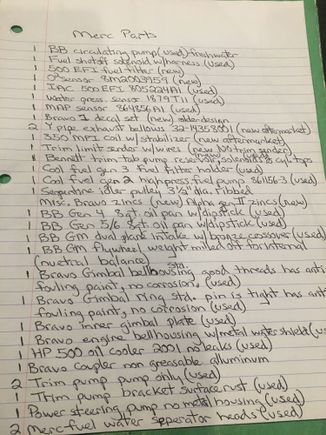 Merc Parts
1 BB circulating pump (used) freshwater
1 Fuel shutoff solenoid w/harness (used)
1 500 EFI fuel filter (new)
1 O² sensor 8M2003959 (new)
1 IAC 500 EFI 805224A1 (used)
1 Water press. sensor 1879T11 (used)
1 MAP sensor 864856A1 (used)
1 Bravo 1 decal set (new) older design
2 Y pipe exhaust bellows 32-14358001 (new aftermarket)
1 8350 MPI Coil w/stabilizer (new aftermarket)
1 Trim limit sender w/wires (new No trim sender)
1 Bennett trim tab pump reservoir, solenoids & cyl. tops
1 Cool fuel gen 3 fuel filter holder (used)
1 Cool fuel gen 2 high press fuel pump 861156-3 (used)
1 Serpentine idler pulley 3½" dia. ribbed
Misc. Bravo zincs (new) Alpha gen II zincs (new)
1 BB Gen 4 8qt. oil pan w/dipstick (used)
1 BB Gen 5/6 8qt. oil pan w/dipstick (used)
1 BB GM dual plane intake w/bronze crossover (used)
1 BB GM flywheel weight milled off for internal
(nuetral balance)
1 Bravo Gimbal bellhousing std. good threads has anti
fouling paint, no corrosion. (used)
1 Bravo Gimbal ring std. pin is tight has anti
fouling paint, no corrosion (used)
1 Bravo inner gimbal plate (used)
1 Bravo engine bellhousing w/metal water shield (us
1 HP 500 oil cooler 2001 no leaks (used)
1 Bravo coupler non greasable alluminum
2 Trim pump pump only (used)
1 Trim pump bracket surface rust (used)
1 Power steering pump no metal housing (used)
2 Merc fuel water seperator heads (used)